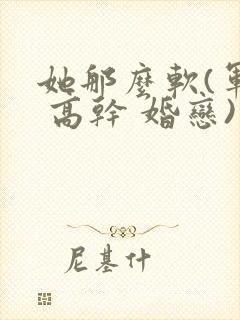 她那麼軟(軍
高幹 婚戀)
尼基什